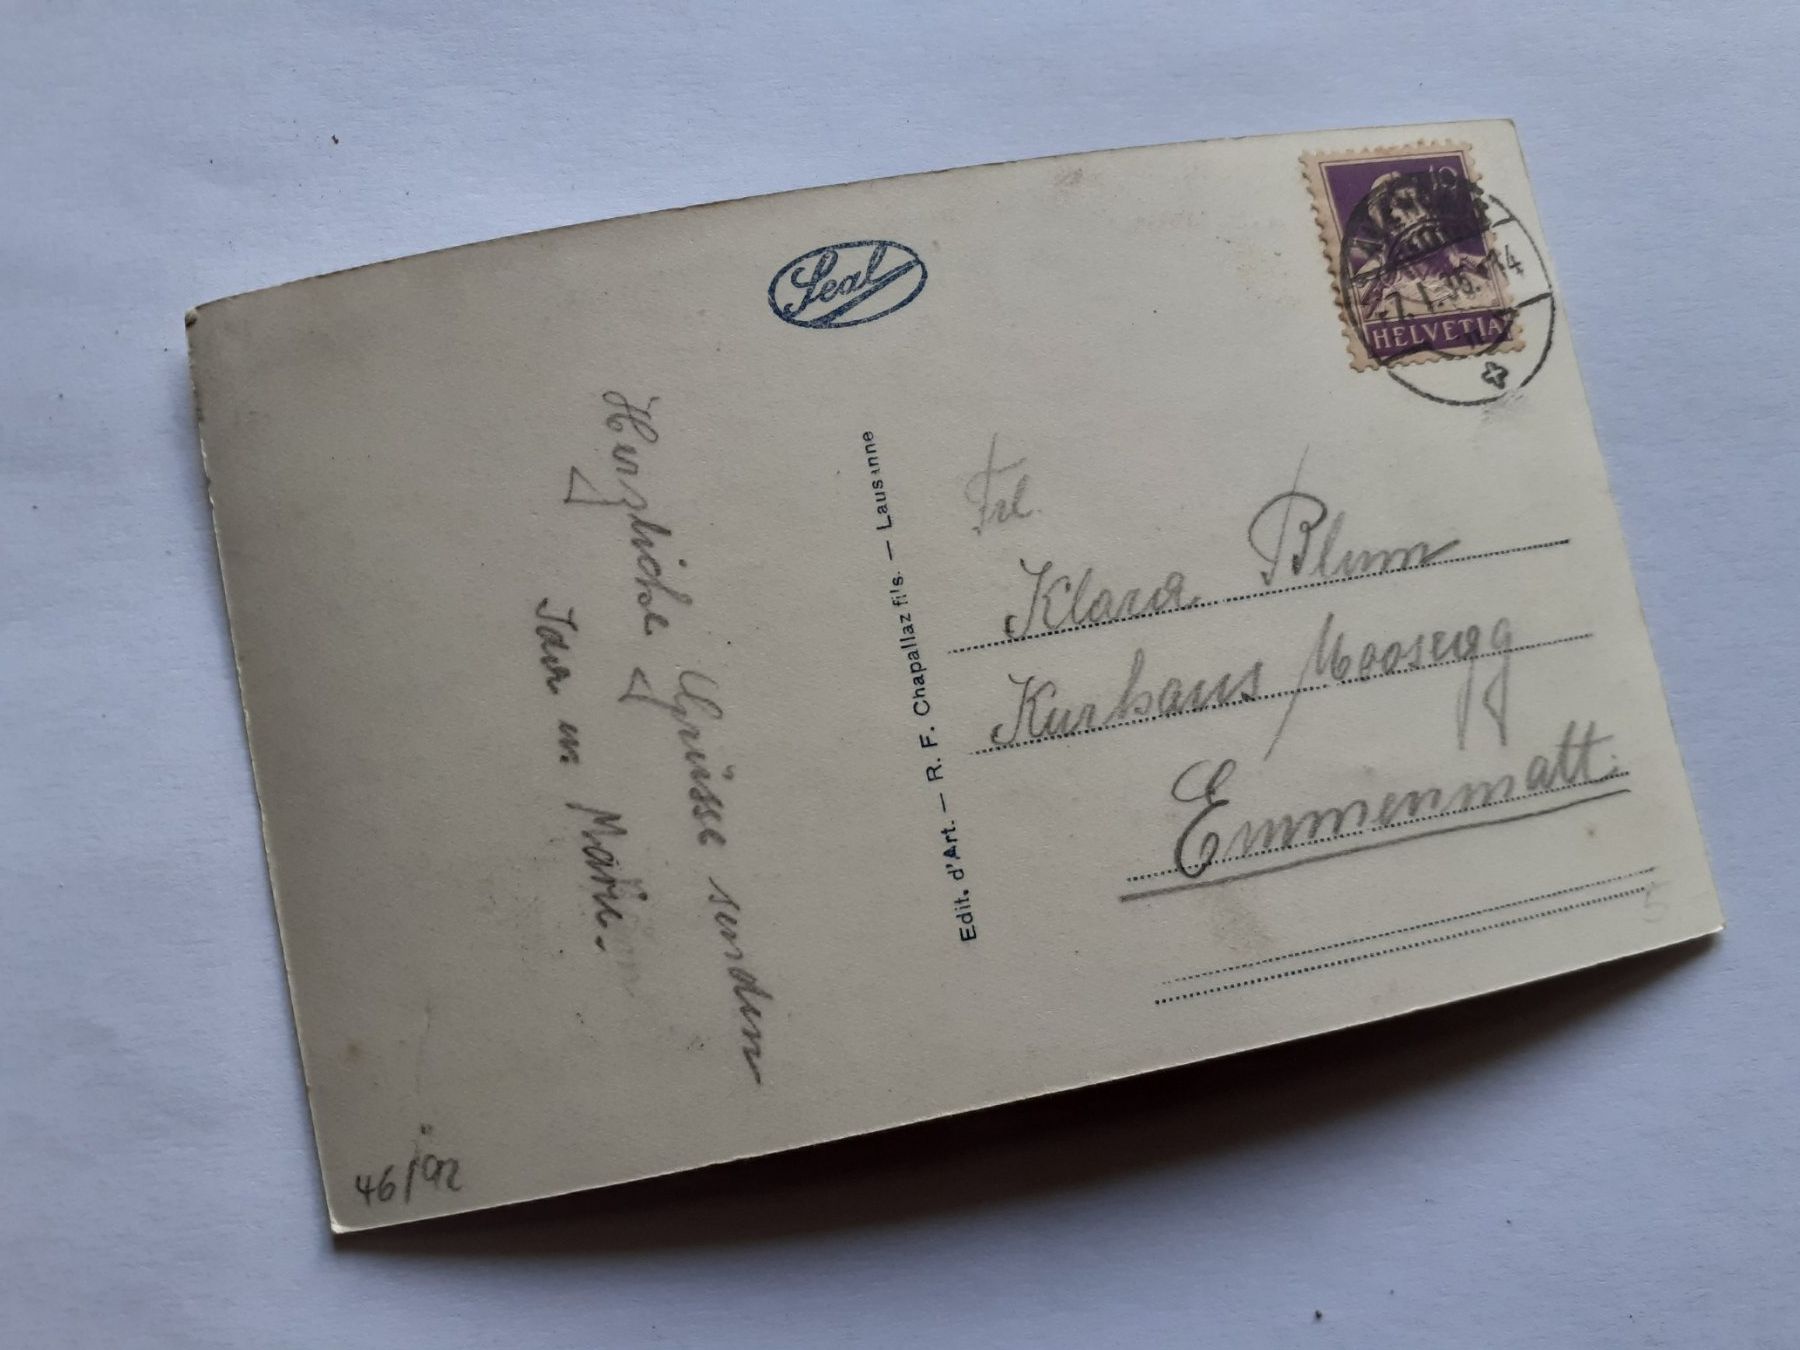 Seal
10
-7. I. 35. -14
HELVETIA
Herzliche Grüsse senden
Ida u. Marie.
Edit. d'Art. — R. F. Chapallaz fils. — Lausanne
Frl.
Klara Blum
Kurhaus Moosegg
Emmenmatt.
46/92